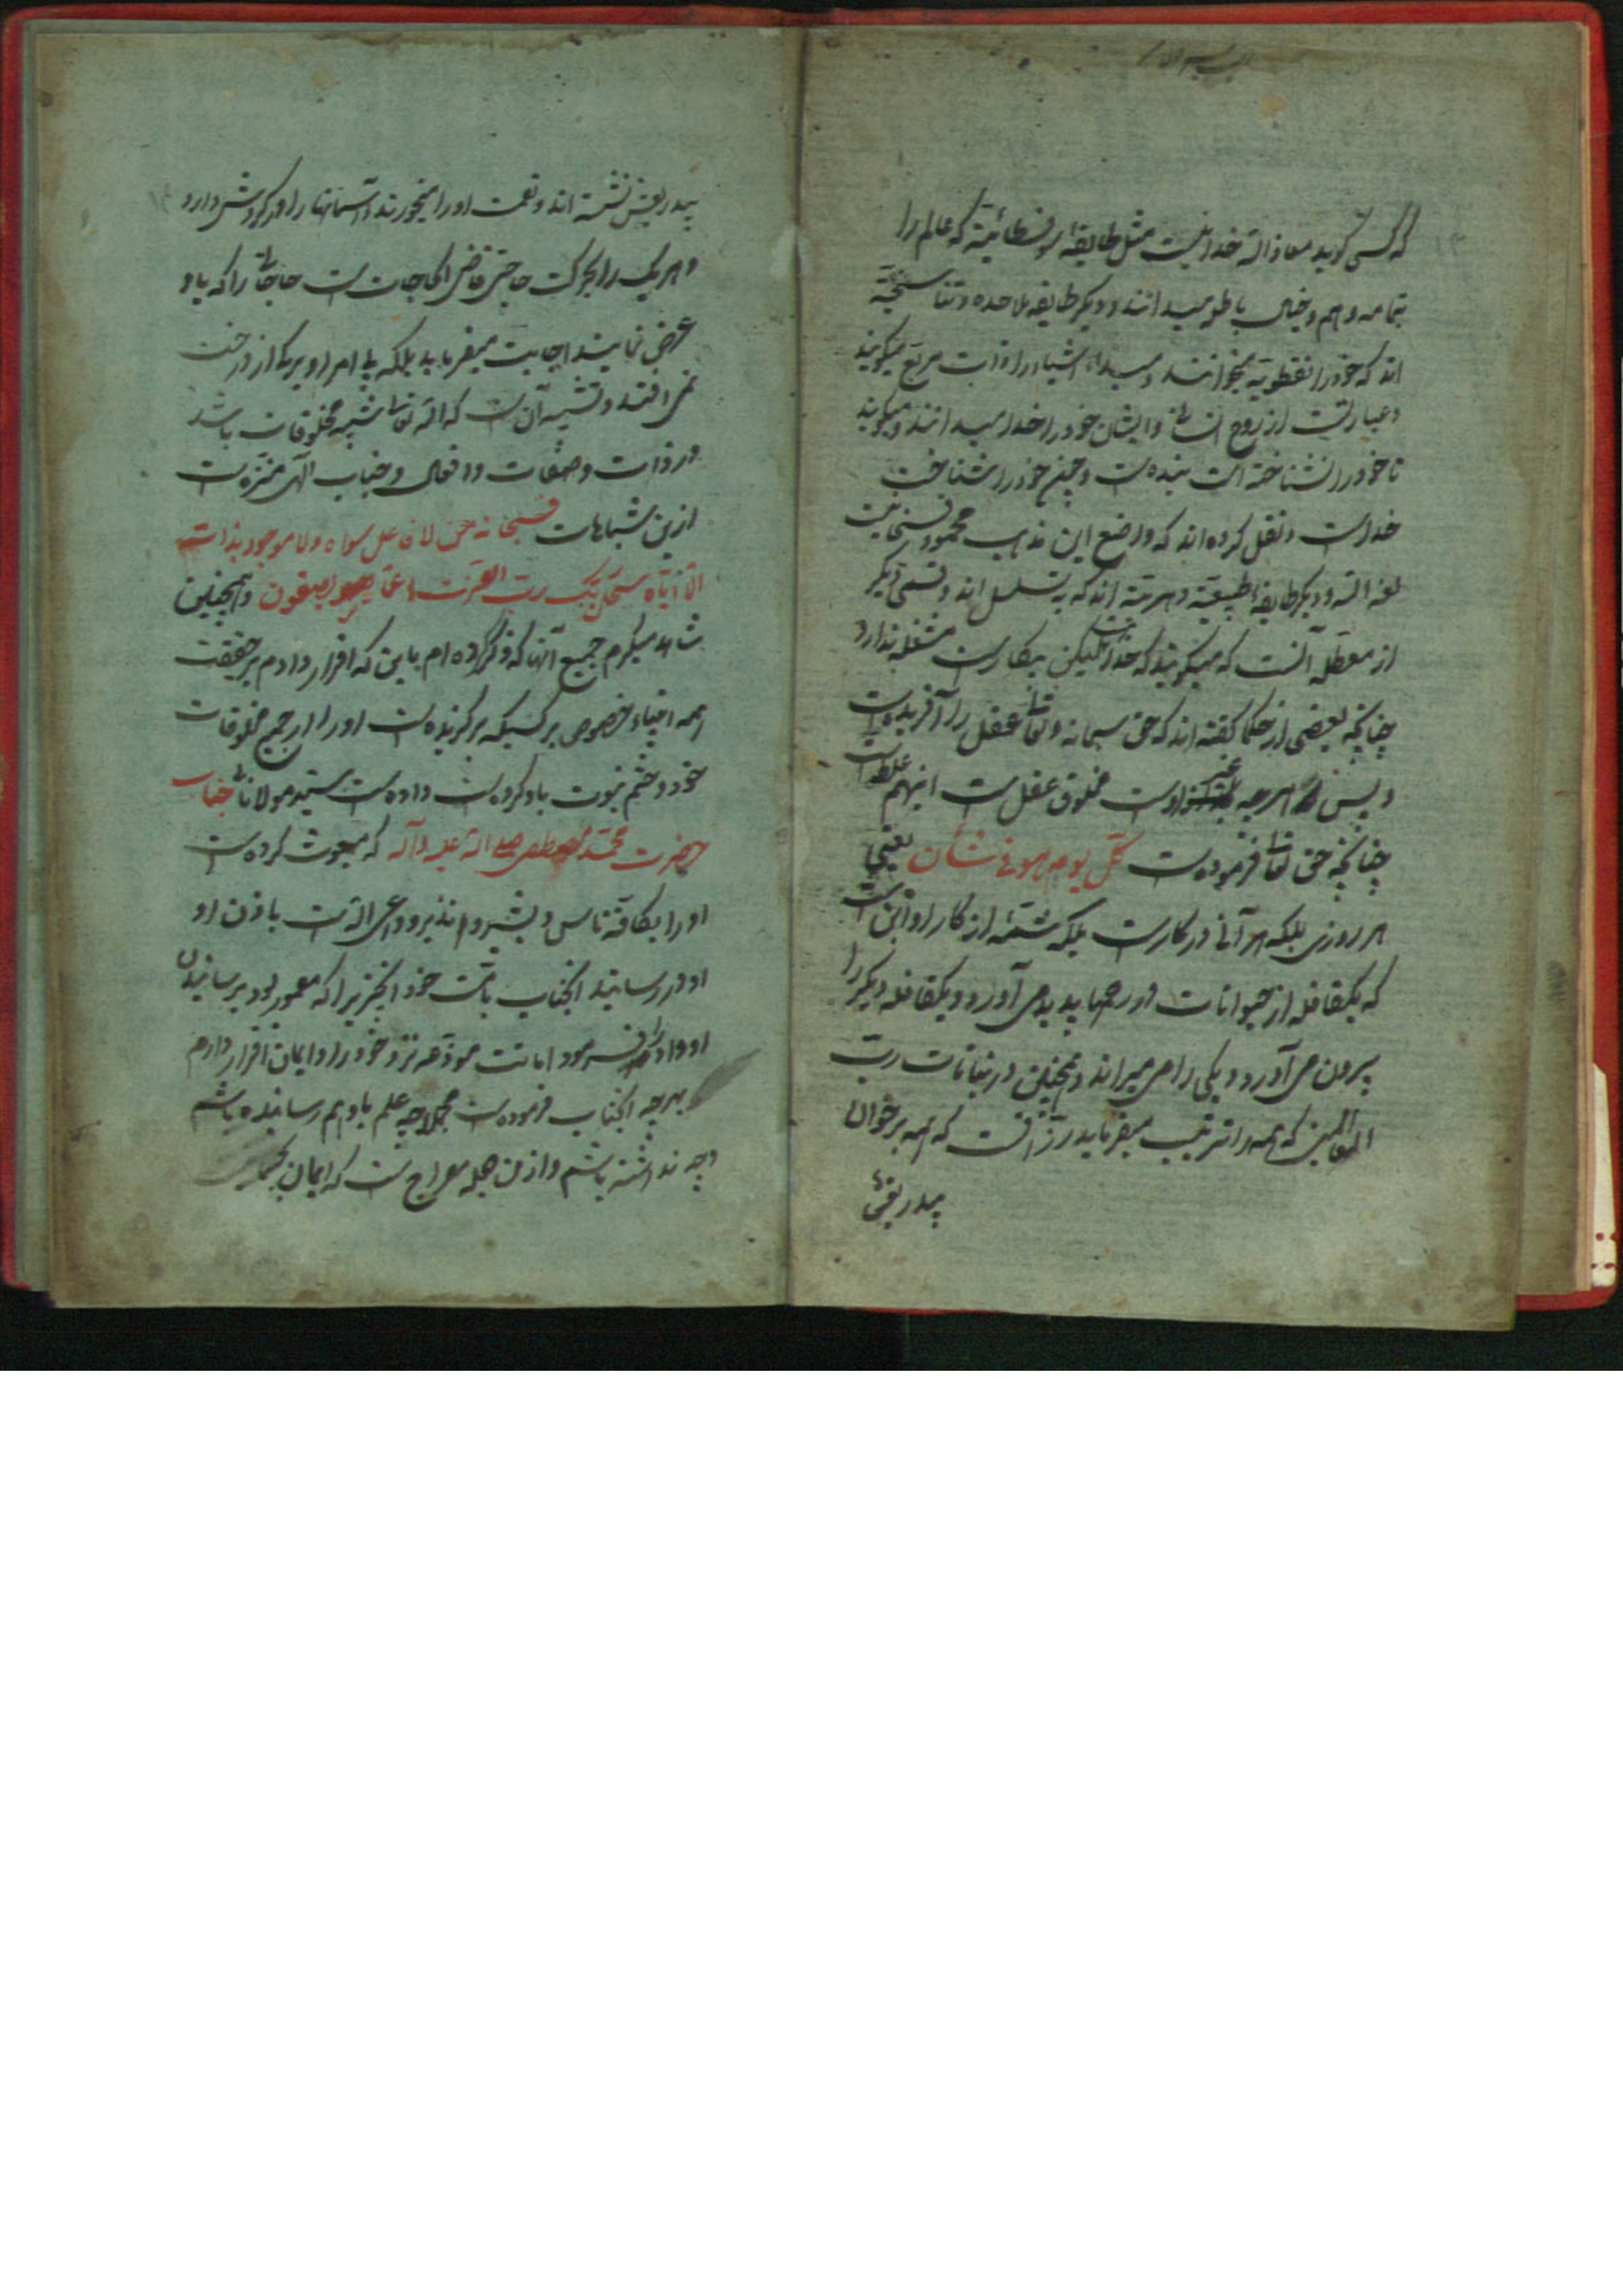 که کسی گوید معاذ الله خدا نیست مثل طایفه سوفسطائیه که عالم را
بتمامه وهم و خیال باطل میدانند و دیگر طایفه ملاحده و تناسخیه
اند که خود را نقطویه میخوانند و مبداء اشیاء را ذات مربع میگویند
و عبارتست از روح انسانی و ایشان خود را خدا میدانند و میگویند
تا خود را نشناخته است بنده است و چون خود را شناخت
خداست و نقل کرده اند که واضع این مذهب محمود فسخانیست
لعنه الله و دیگر طایفه طبیعیه و دهریه اند که به تسلسل اند و قسمی دیگر
از معطله آنست که میگویند که خدا هست لیکن بیکار است مشغله ندارد
چنانچه بعضی از حکما گفته اند که حق سبحانه و تعالی عقل را آفریده است
و پس هرچه غیر اوست مخلوق عقل است اینهم غلط است
چنانچه حق تعالی فرموده است کل یوم هو فی شان یعنی
هر روزی بلکه هر آنی در کار است بلکه شمه از کار او این است
که یکقافله از حیوانات در رحمها پدید می آورد و یکقافله دیگر را
بیرون می آورد و یکی را می میراند و همچنین در نباتات رب
العالمین که همه را تربیت میفرماید رزاقست که همه بر خوان
بیدریغش
بیدریغش نشسته اند و نعمت او را میخورند و آسمانها را در گردش دارد
و هر یک را بحرکت خاصی قاضی الحاجات است حاجاتی را که باو
عرض نمایند اجابت میفرماید بلکه بی امر او برگ از درخت
نمی افتد و تشبیه آن است که الله تعالی شبیه مخلوقات باشد
در ذات و صفات و افعال و جناب الهی منزه است
ازین شباهات فسبحانه من لا فاعل سواه و لا موجود بذاته
الا ایاه سبحان ربک رب العزت عما یصفون و همچنین
شاهد میگیرم جمیع آنها که ذکر کرده ام باین که اقرار دارم بر حقیقت
همه انبیاء خصوص بر کسیکه برگزیده است او را از جمیع مخلوقات
خود و ختم نبوت باو کرده است داده است سید مولانا جناب
حضرت محمد مصطفی صلی الله علیه و آله که مبعوث کرده است
او را بکافه ناس و بشیر و نذیر و داعی الله است باذن او
او در رسانید انجناب بامت خود انچیز را که مامور بود برسانیدن
او و ادا فرمود امانت مودعه نزد خود را و ایمان اقرار دارم
بهرچه انجناب فرموده است مجملا چه علم باو بهم رسانیده باشم
و چه نداشته باشم و ازین جمله معراج است که ایمان